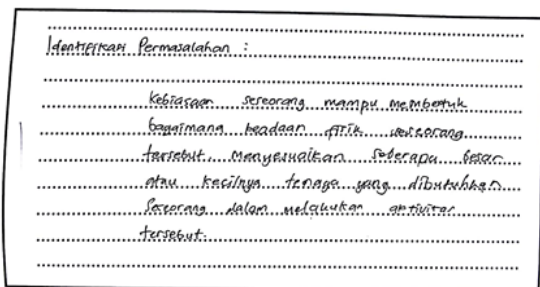 Identifikasi Permasalahan :
Kebiasaan seseorang mampu membentuk
bagaimana keadaan fisik seseorang
tersebut menyesuaikan seberapa besar
atau kecilnya tenaga yang dibutuhkan
seseorang dalam melakukan aktivitas
tersebut.